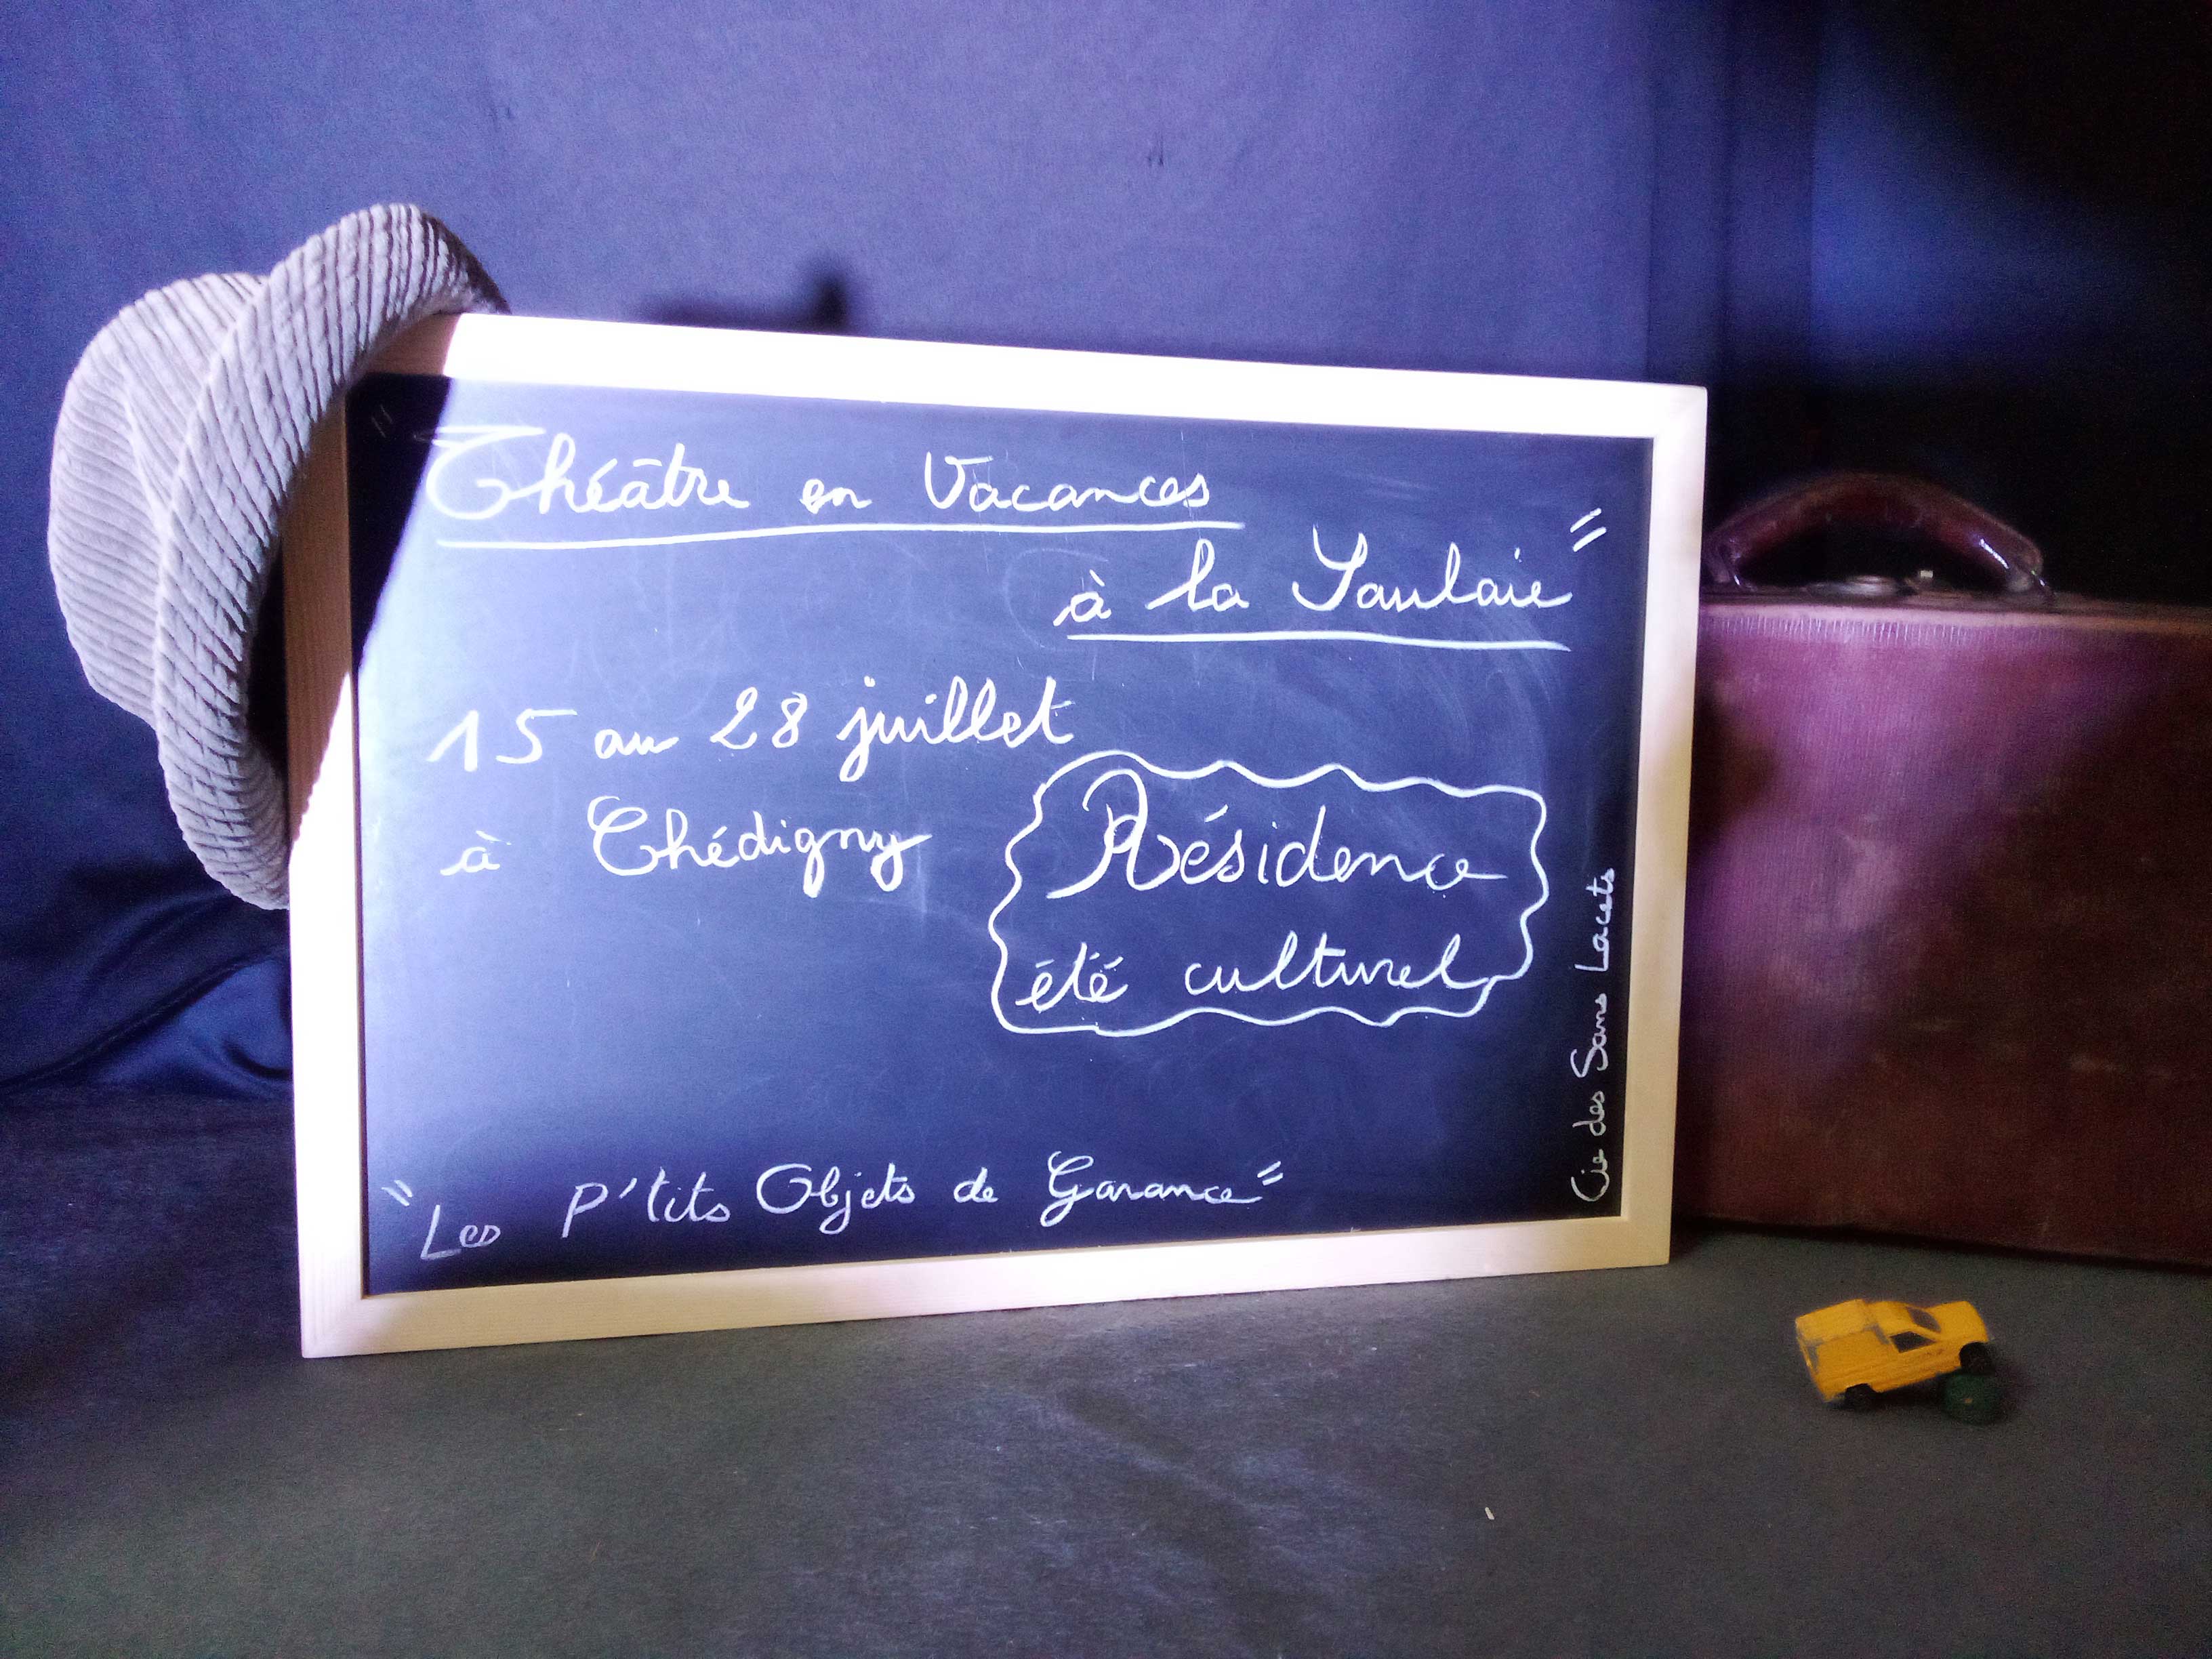 " Théâtre en Vacances
à la Saulaie "
15 au 28 juillet
à Chédigny
Résidence
été culturel
"Les P'tits Objets de Garance"
Cie des Sans Lacets